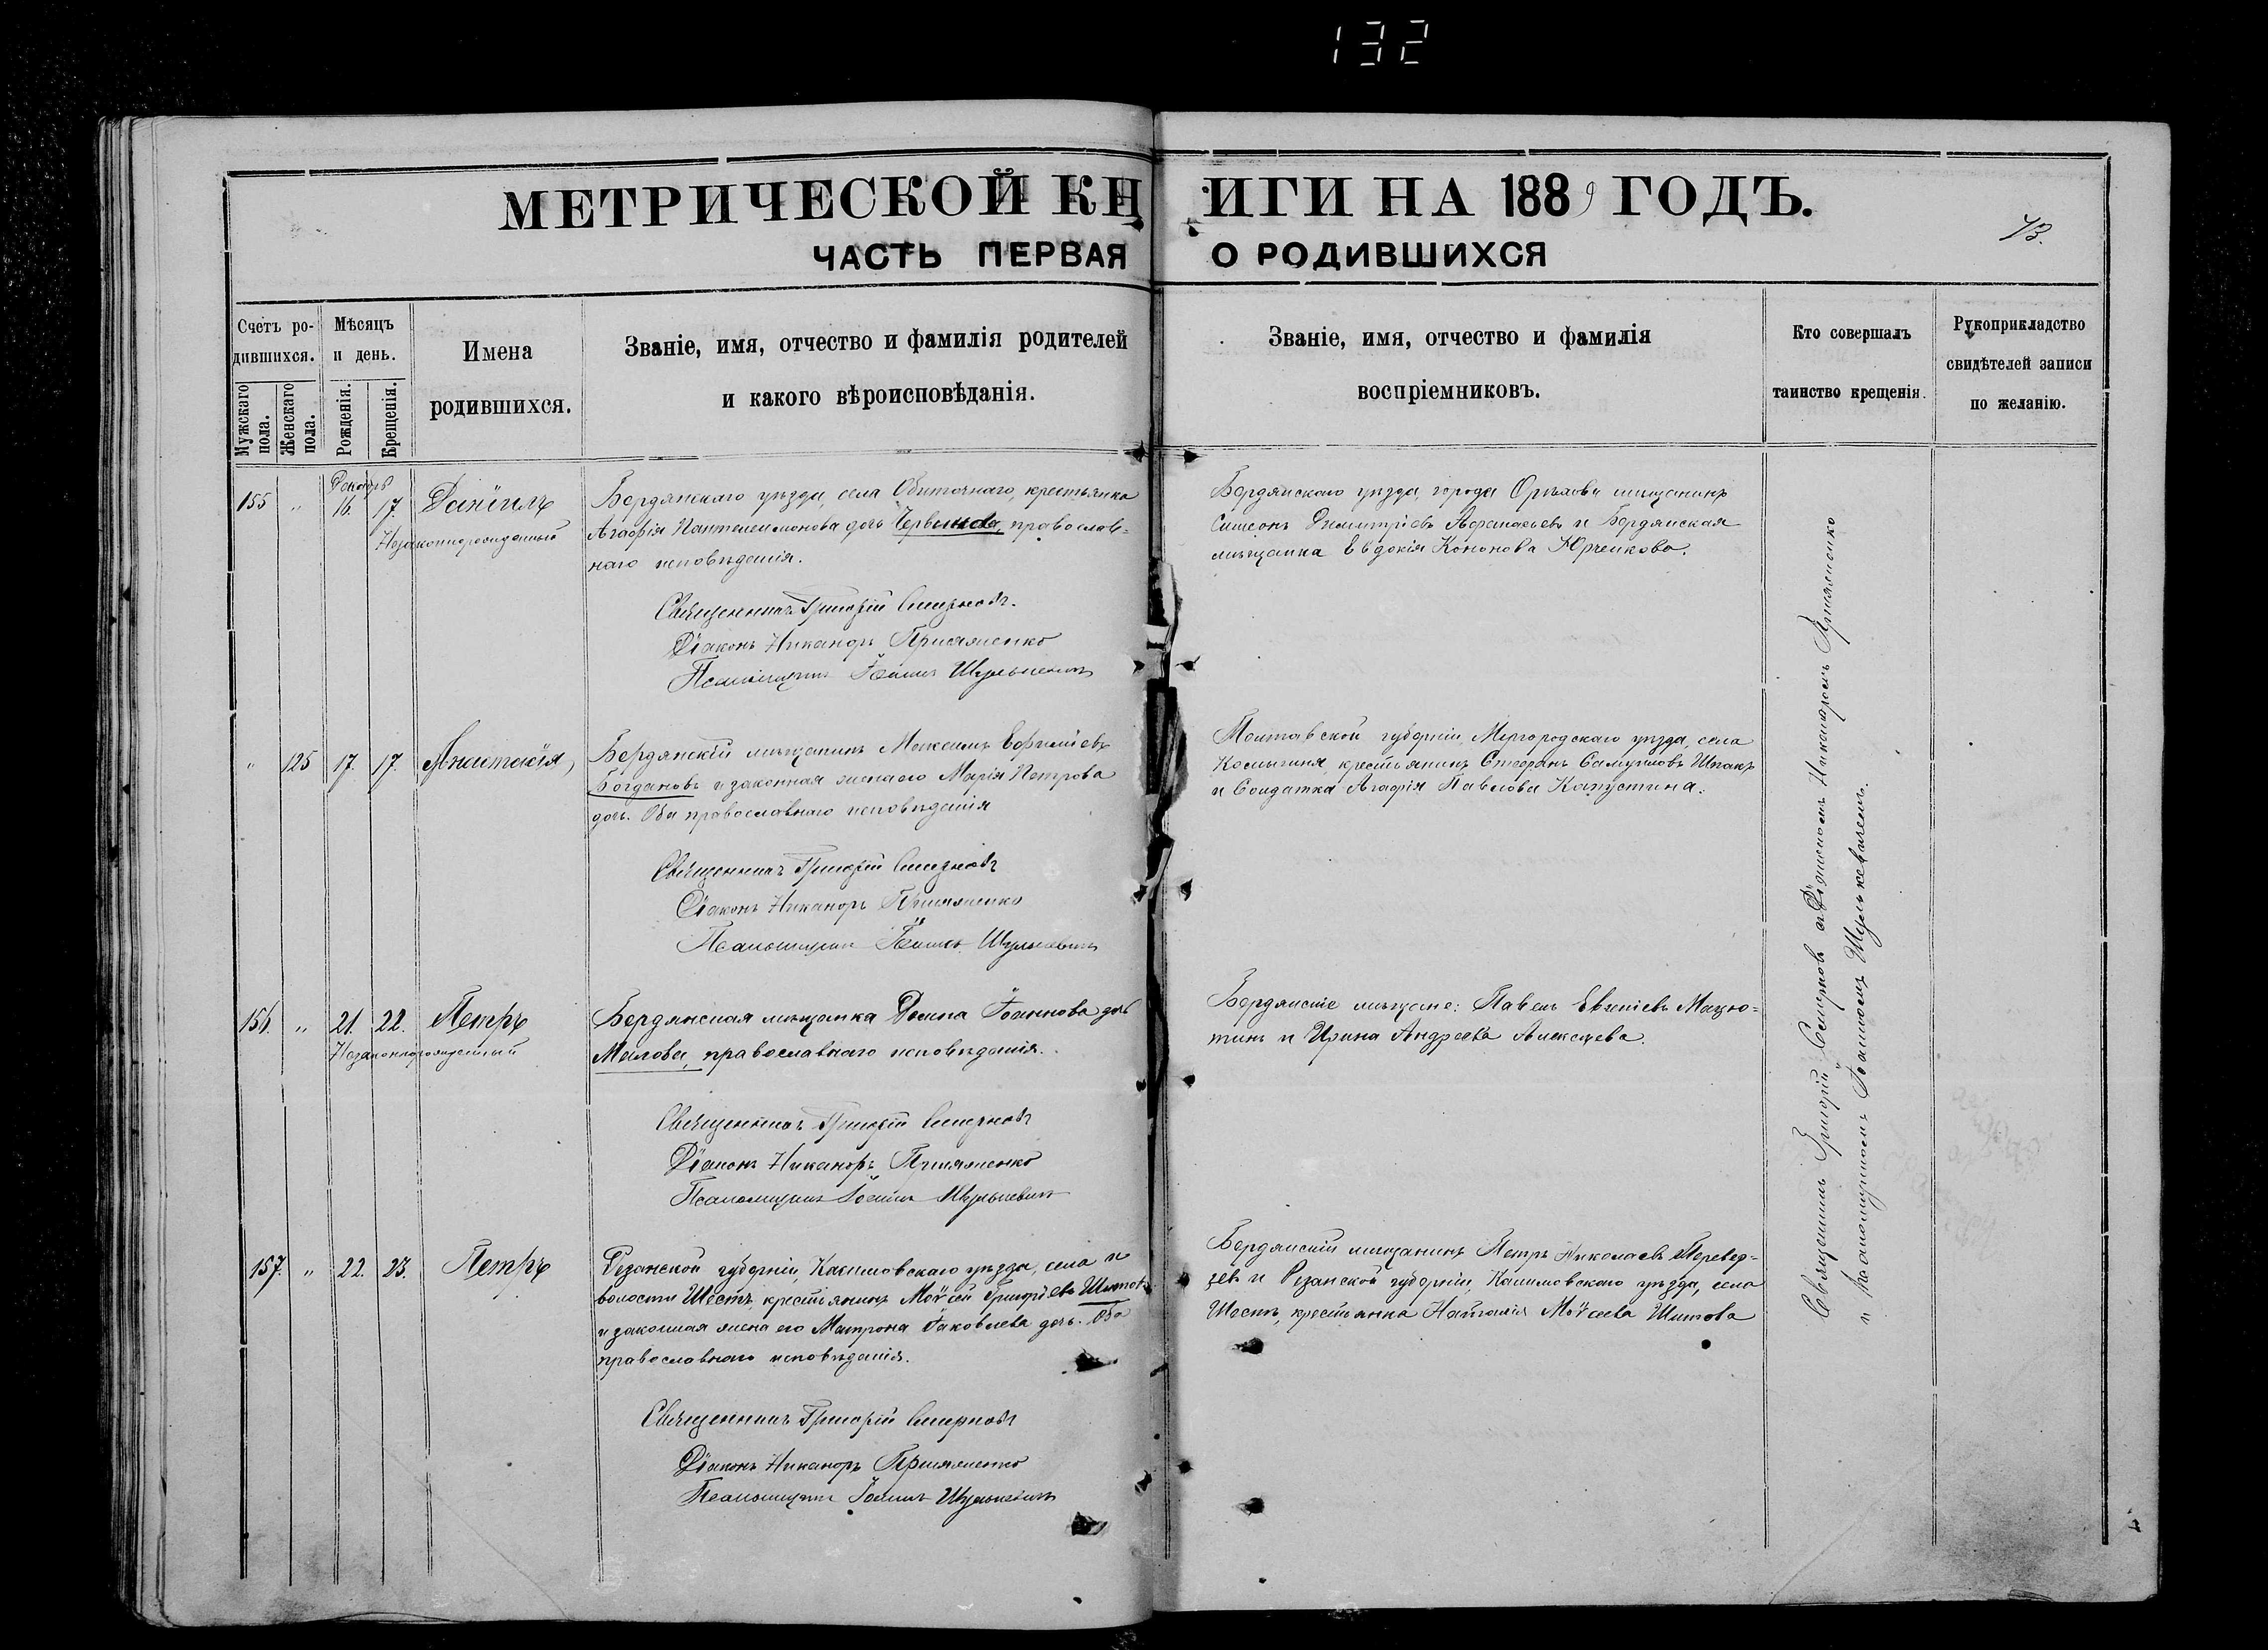 132
МЕТРИЧЕСКОЙ КНИГИ НА 1889 ГОДЪ.
ЧАСТЬ ПЕРВАЯ О РОДИВШИХСЯ
73.
Счетъ ро-
дившихся.
Мужскаго пола.
Женскаго пола.
Мѣсяцъ
и день.
Рожденія.
Крещенія.
Имена
родившихся.
Званіе, имя, отчество и фамилія родителей
и какого вѣроисповѣданія.
Званіе, имя, отчество и фамилія
воспріемниковъ.
Кто совершалъ
таинство крещенія.
Рукоприкладство
свидѣтелей записи
по желанію.
Декабрь
155 " 16. 17. Даніилъ
Незаконнорожденный
Бердянскаго уѣзда, села Обиточнаго, крестьянка
Агафія Пантелеимонова дочь Червинова, православ-
наго исповѣданія.
Священникъ Григорій Смирновъ.
Діаконъ Никаноръ Присяженко
Псаломщикъ Іоаннъ Шулькевичъ
Бердянскаго уѣзда, города Орѣхова мѣщанинъ
Симеонъ Димитріевъ Афанасьевъ и Бердянская
мѣщанка Евдокія Кононова Юрченкова.
" 125 17. 17. Анатолія,
Бердянскій мѣщанинъ Максимъ Ефиміевъ
Богдановъ и законная жена его Марія Петрова
дочь. Оба православнаго исповѣданія
Священникъ Григорій Смирновъ
Діаконъ Никаноръ Присяженко
Псаломщикъ Іоаннъ Шулькевичъ
Полтавской губерніи, Миргородскаго уѣзда, села
крестьянинъ Стефанъ Самуиловъ Шпакъ
и Солдатка Агафія Павлова Капустина.
156. " 21. 22. Петръ
Незаконнорожденный
Бердянская мѣщанка Домна Іоаннова дочь
Малова, православнаго исповѣданія.
Священникъ Григорій Смирновъ
Діаконъ Никаноръ Присяженко
Псаломщикъ Іоаннъ Шулькевичъ
Бердянскіе мѣщане: Павелъ Евгеніевъ Мацю-
тинъ и Ирина Андреева Алексѣева.
157. " 22. 23. Петръ
Рязанской губерніи, Касимовскаго уѣзда, села и
волости Шостъ, крестьянинъ Моѵсей Григоріевъ Шитовъ
и законная жена его Матрона Іаковлева дочь. Оба
православнаго исповѣданія.
Священникъ Григорій Смирновъ
Діаконъ Никаноръ Присяженко
Псаломщикъ Іоаннъ Шулькевичъ
Бердянскій мѣщанинъ Петръ Николаевъ Перевер-
зевъ и Рязанской губерніи, Касимовскаго уѣзда, села
Шостъ, крестьянка Наталія Моѵсеева Шитова
Священникъ Григорій Смирновъ съ Діакономъ Никаноромъ Присяженко
и псаломщикомъ Іоанномъ Шулькевичемъ.